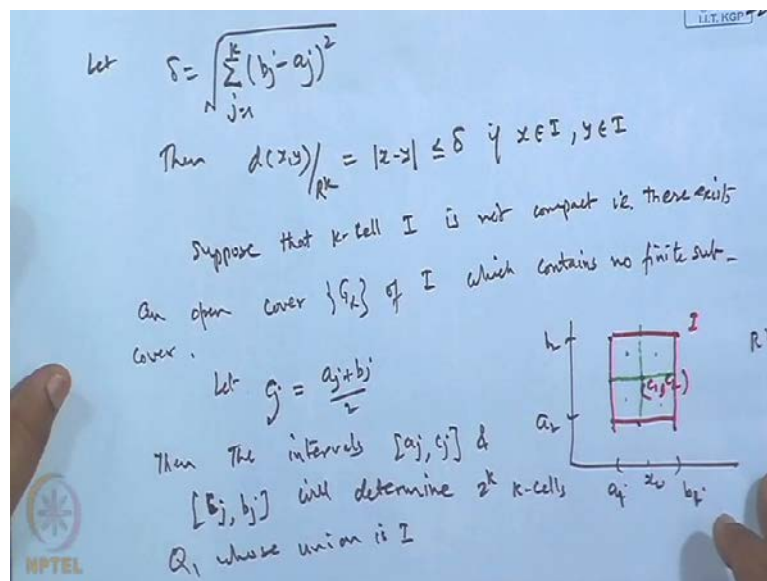 I.I.T. KGP
Let δ = √(∑_{j=1}^{k} (bj - aj)²)
Then d(x,y)/R^k = |x-y| ≤ δ if x ∈ I, y ∈ I
Suppose that k-cell I is not compact i.e. there exists
an open cover {Gα} of I which contains no finite sub-
cover.
Let cj = (aj + bj)/2
Then The intervals [aj, cj] &
[cj, bj] will determine 2^k k-cells
Q1 whose union is I
I
R
(c1, c2)
a2
NPTEL